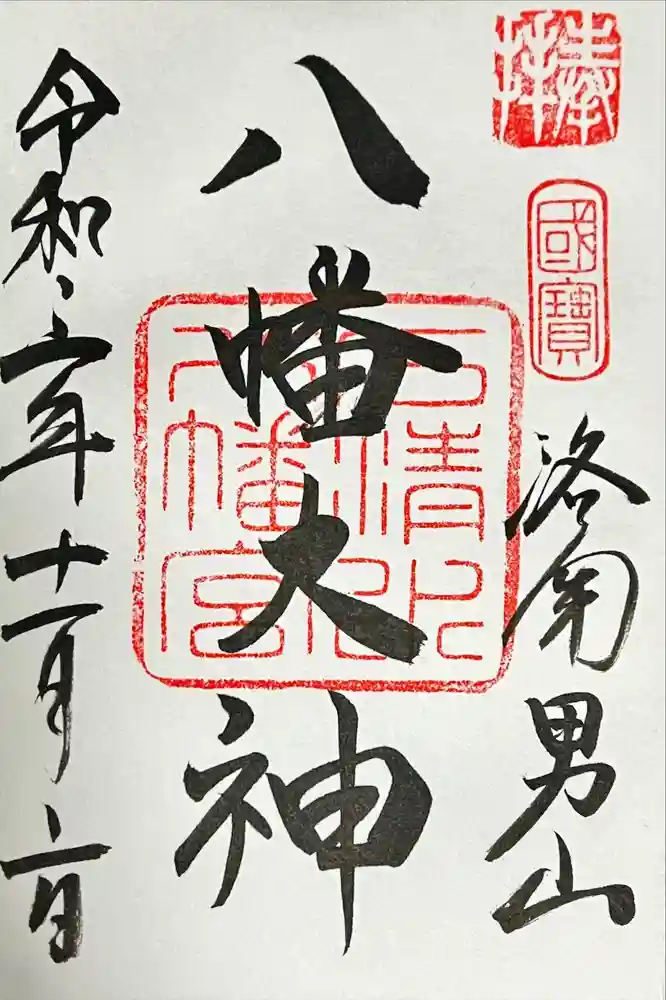 奉拝
國寶
洛南男山
八幡大神
八幡宮
令和二年十一月二日